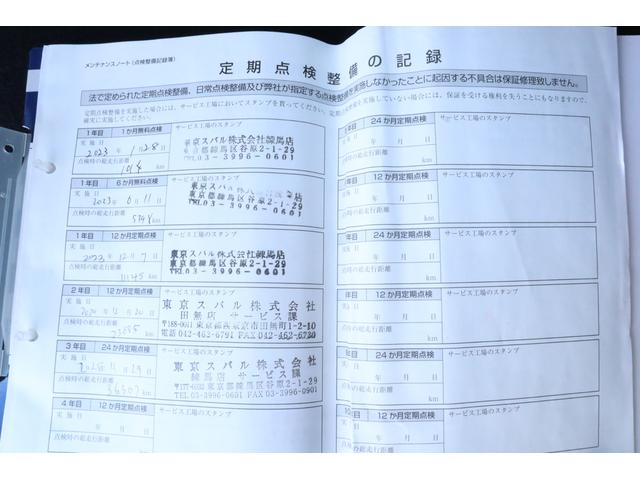 メンテナンスノート(点検整備記録簿)
定期点検整備の記録
法で定められた定期点検整備、日常点検整備及び弊社が指定する点検整備を実施しなかったことに起因する不具合は保証修理致しません。
1年目 1か月無料点検 サービス工場のスタンプ
実施日 2023年1月28日
点検時の総走行距離 km
東京スバル株式会社練馬店
東京都練馬区谷原2-1-29
TEL.03-3996-0601
1年目 6か月無料点検 サービス工場のスタンプ
実施日 2023年6月11日
点検時の総走行距離 km
東京スバル株式会社練馬店
東京都練馬区谷原2-1-29
TEL.03-3996-0601
1年目 12か月定期点検 サービス工場のスタンプ
実施日 年12月7日
点検時の総走行距離 km
東京スバル株式会社練馬店
東京都練馬区谷原2-1-29
TEL.03-3996-0601
2年目 12か月定期点検 サービス工場のスタンプ
実施日 年 月 日
点検時の総走行距離 km
東京スバル株式会社
田無店 サービス課
〒188-0011 東京都西東京市田無町1-2-10
電話 042-462-6791 FAX 042-462-6730
3年目 24か月定期点検 サービス工場のスタンプ
実施日 年 月 日
点検時の総走行距離 km
東京スバル株式会社
練馬店 サービス課
東京都練馬区谷原2-1-29
TEL 03-3996-0601 FAX 03-3996-0901
4年目 12か月定期点検 サービス工場のスタンプ
実施日 年 月 日
点検時の総走行距離
24か月定期点検 サービス工場のスタンプ
年 月 日
km
12か月定期点検 サービス工場のスタンプ
実施日 年 月 日
点検時の総走行距離 km
24か月定期点検 サービス工場のスタンプ
実施日 年 月 日
点検時の総走行距離 km
12か月定期点検 サービス工場のスタンプ
実施日 年 月 日
点検時の総走行距離 km
24か月定期点検 サービス工場のスタンプ
実施日 年 月 日
点検時の総走行距離 km
12か月定期点検 サービス工場のスタンプ
実施日 年 月 日
点検時の総走行距離 km